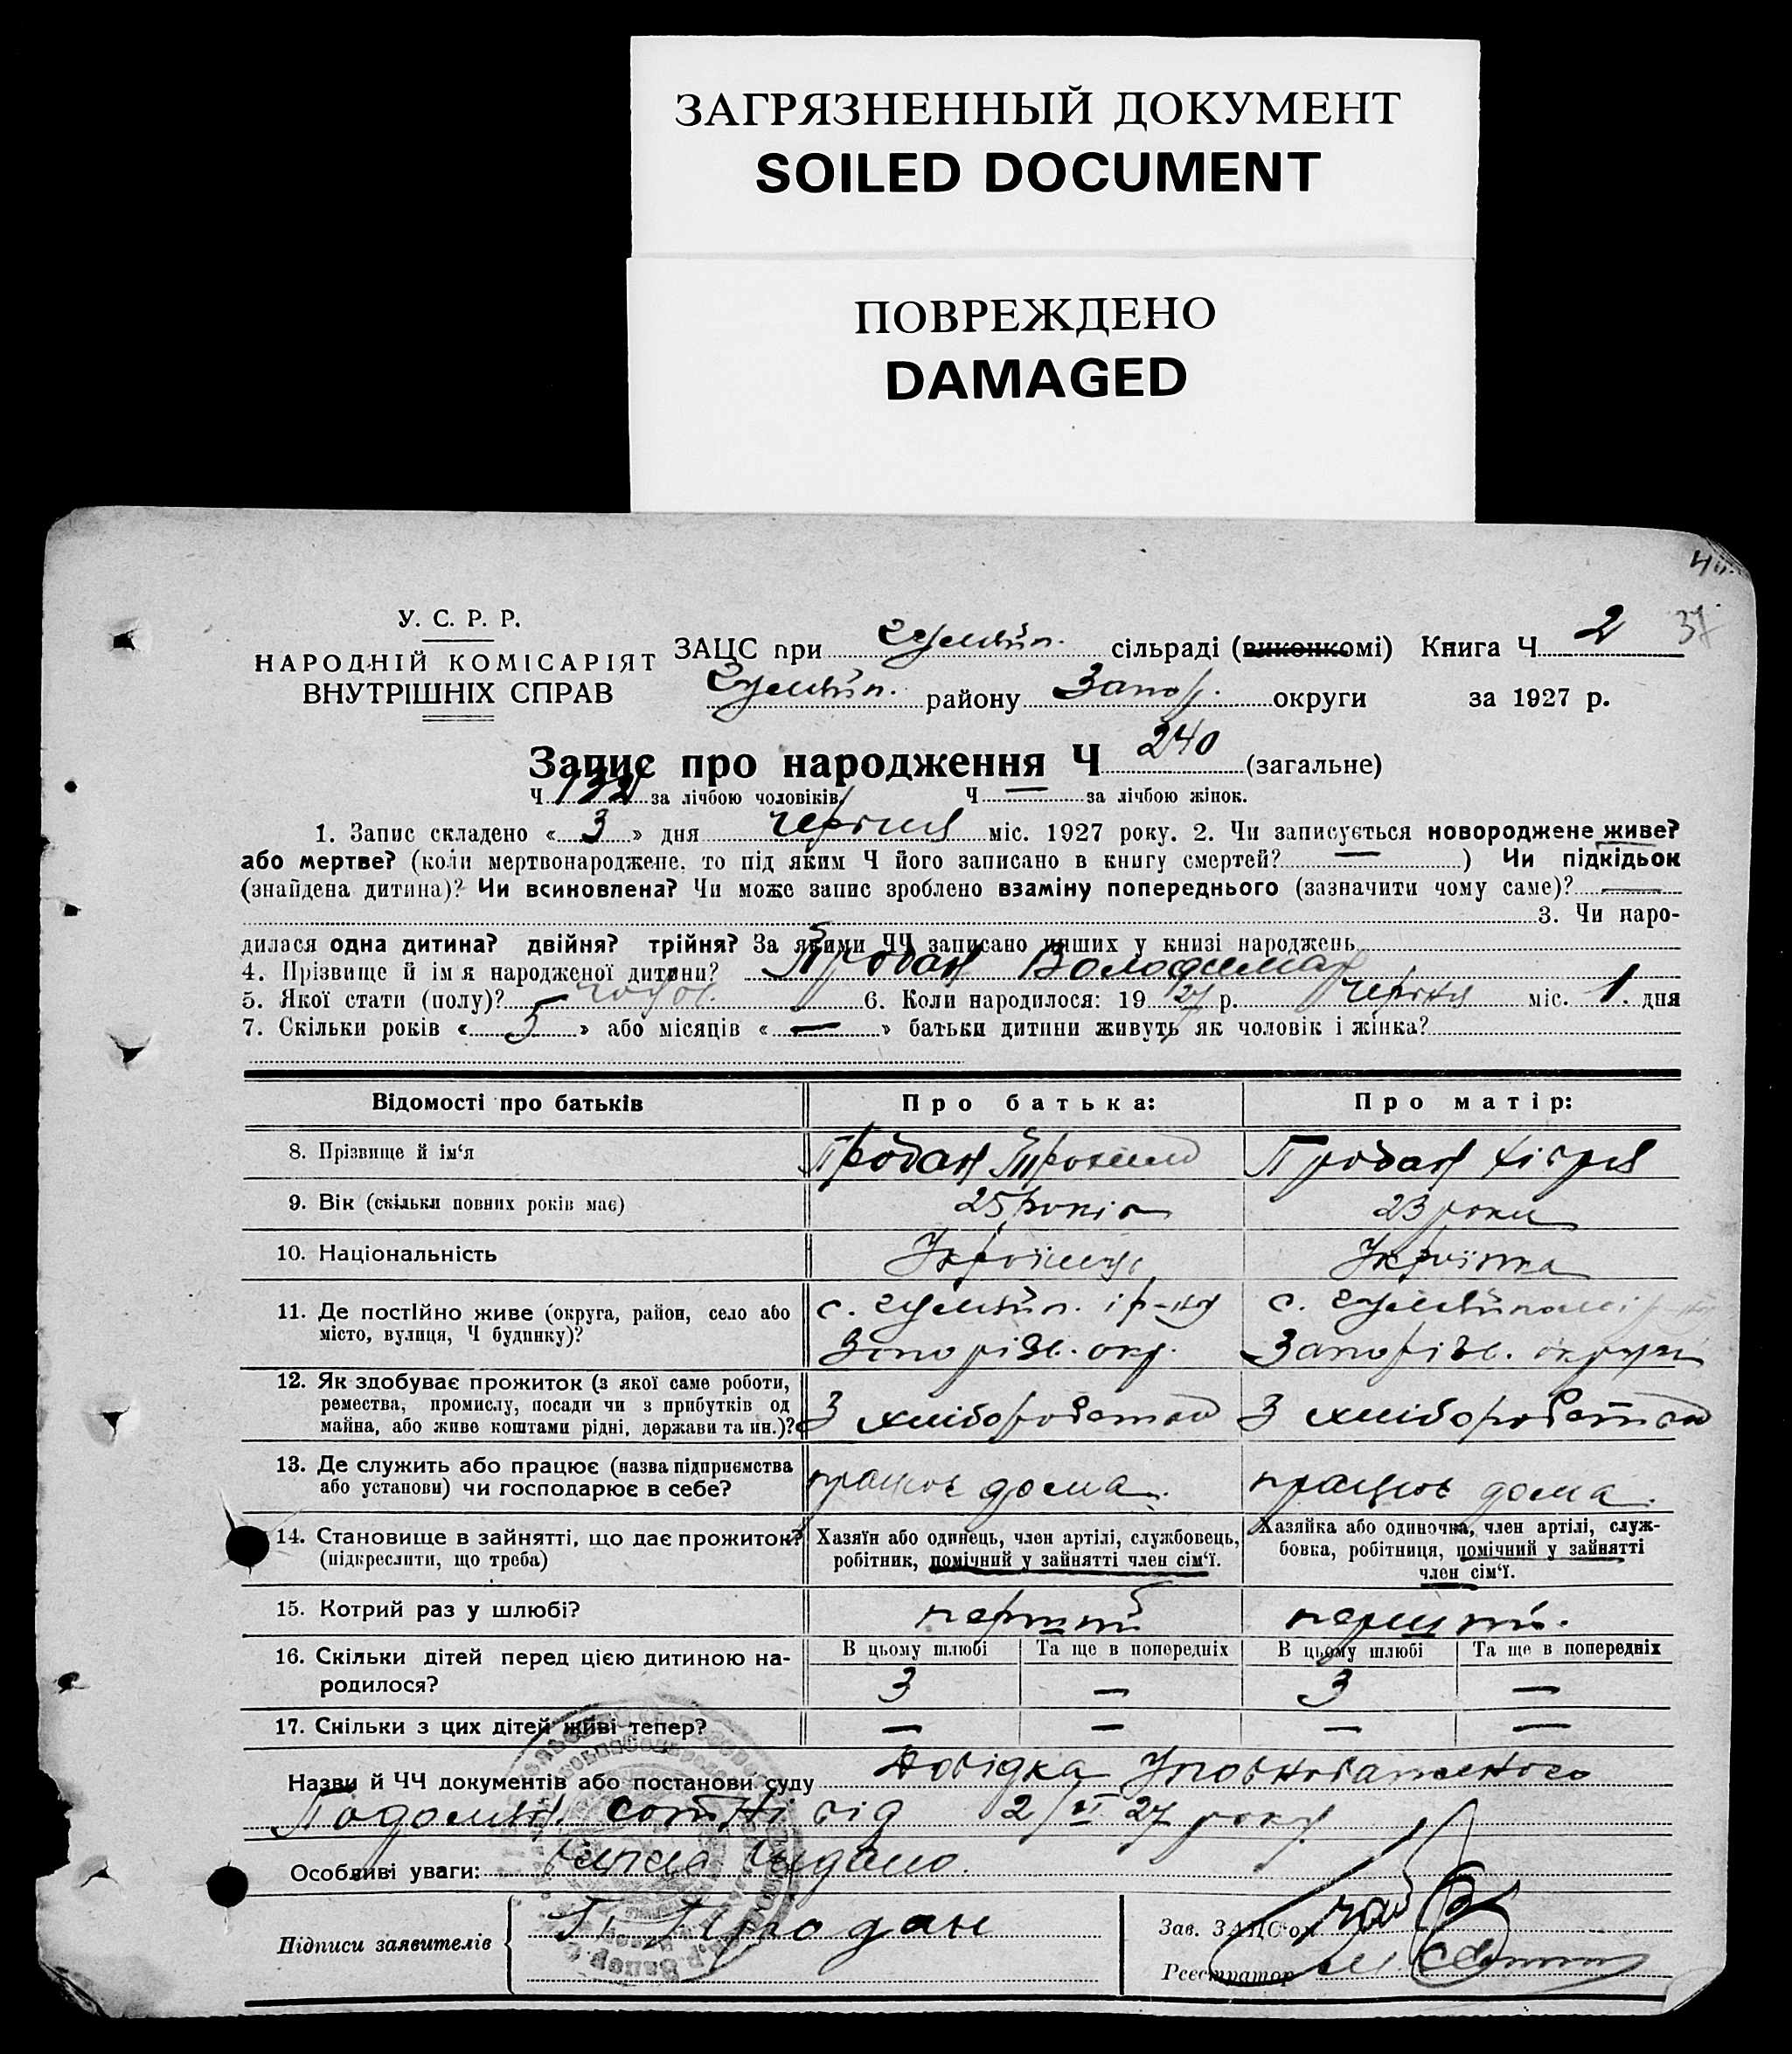 ЗАГРЯЗНЕННЫЙ ДОКУМЕНТ
SOILED DOCUMENT
ПОВРЕЖДЕНО
DAMAGED
37
У. С. Р. Р.
НАРОДНІЙ КОМІСАРІЯТ
ВНУТРІШНІХ СПРАВ
ЗАЦС при сільраді (виконкомі) Книга Ч 2
району Запор. округи за 1927 р.
Запис про народження Ч 240 (загальне)
Ч 132 за лічбою чоловіків. Ч — за лічбою жінок.
1. Запис складено « 3 » дня червня міс. 1927 року. 2. Чи записується новороджене живе?
або мертве? (коли мертвонароджене, то під яким Ч його записано в книгу смертей? — ) Чи підкідьок
(знайдена дитина)? Чи всиновлена? Чи може запис зроблено взаміну попереднього (зазначити чому саме)? —
3. Чи наро-
дилася одна дитина? двійня? трійня? За якими ЧЧ записано инших у книзі народжень
4. Прізвище й ім'я народженої дитини? Продан Володимар
5. Якої стати (полу)? чолов. 6. Коли народилося: 19 27 р. червня міс. 1 дня
7. Скільки років « 5 » або місяців « — » батьки дитини живуть як чоловік і жінка?
Відомості про батьків Про батька: Про матір:
8. Прізвище й ім'я Продан Трохим Продан
9. Вік (скільки повних років має) 25 років 23 роки
10. Національність Українець Українка
11. Де постійно живе (округа, район, село або
місто, вулиця, Ч будинку)?
с. і р-ну с.
Запорізь. окр. Запорізь. округи
12. Як здобуває прожиток (з якої саме роботи,
ремества, промислу, посади чи з прибутків од
майна, або живе коштами рідні, держави та ин.)?
З хліборобства З хліборобства
13. Де служить або працює (назва підприємства
або установи) чи господарює в себе?
працює дома. працює дома.
14. Становище в зайнятті, що дає прожиток?
(підкреслити, що треба)
Хазяїн або одинець, член артілі, службовець,
робітник, помічний у зайнятті член сім'ї.
Хазяйка або одиночка, член артілі, служ-
бовка, робітниця, помічний у зайнятті
член сім'ї.
15. Котрий раз у шлюбі? перший перший.
16. Скільки дітей перед цією дитиною на-
родилося?
В цьому шлюбі Та ще в попередніх В цьому шлюбі Та ще в попередніх
3 — 3 —
17. Скільки з цих дітей живі тепер? — — — —
Назви й ЧЧ документів або постанови суду Довідка Уповноваженого
сотні від 2/VI 27 року
Особливі уваги: Видано.
Підписи заявителів Продан
Зав. ЗАЦС'ом
Реєстратор